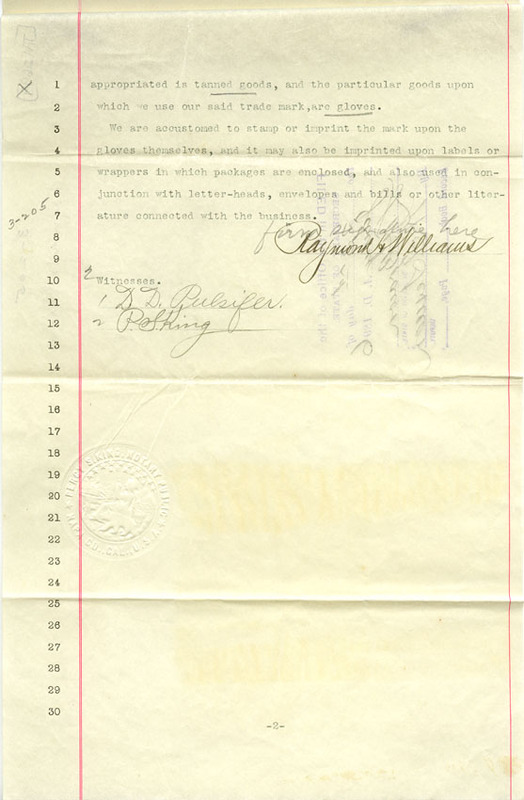 1 appropriated is tanned goods, and the particular goods upon
2 which we use our said trade mark,are gloves.
3 We are accustomed to stamp or imprint the mark upon the
4 gloves themselves, and it may also be imprinted upon labels or
5 wrappers in which packages are enclosed, and also used in con-
6 junction with letter-heads, envelopes and bills or other liter-
3-205
7 ature connected with the business.
firm signature here
8 Raymond & Williams
9
10 2 Witnesses.
11 1 D. D. Pulsifer.
12 2 P. S. King
13
14
15
16
17
18
19
20
21
22
23
24
25
26
27
28
29
30
PERCY S. KING. NOTARY PUBLIC
NAPA CO. CAL. U.S.A.
-2-